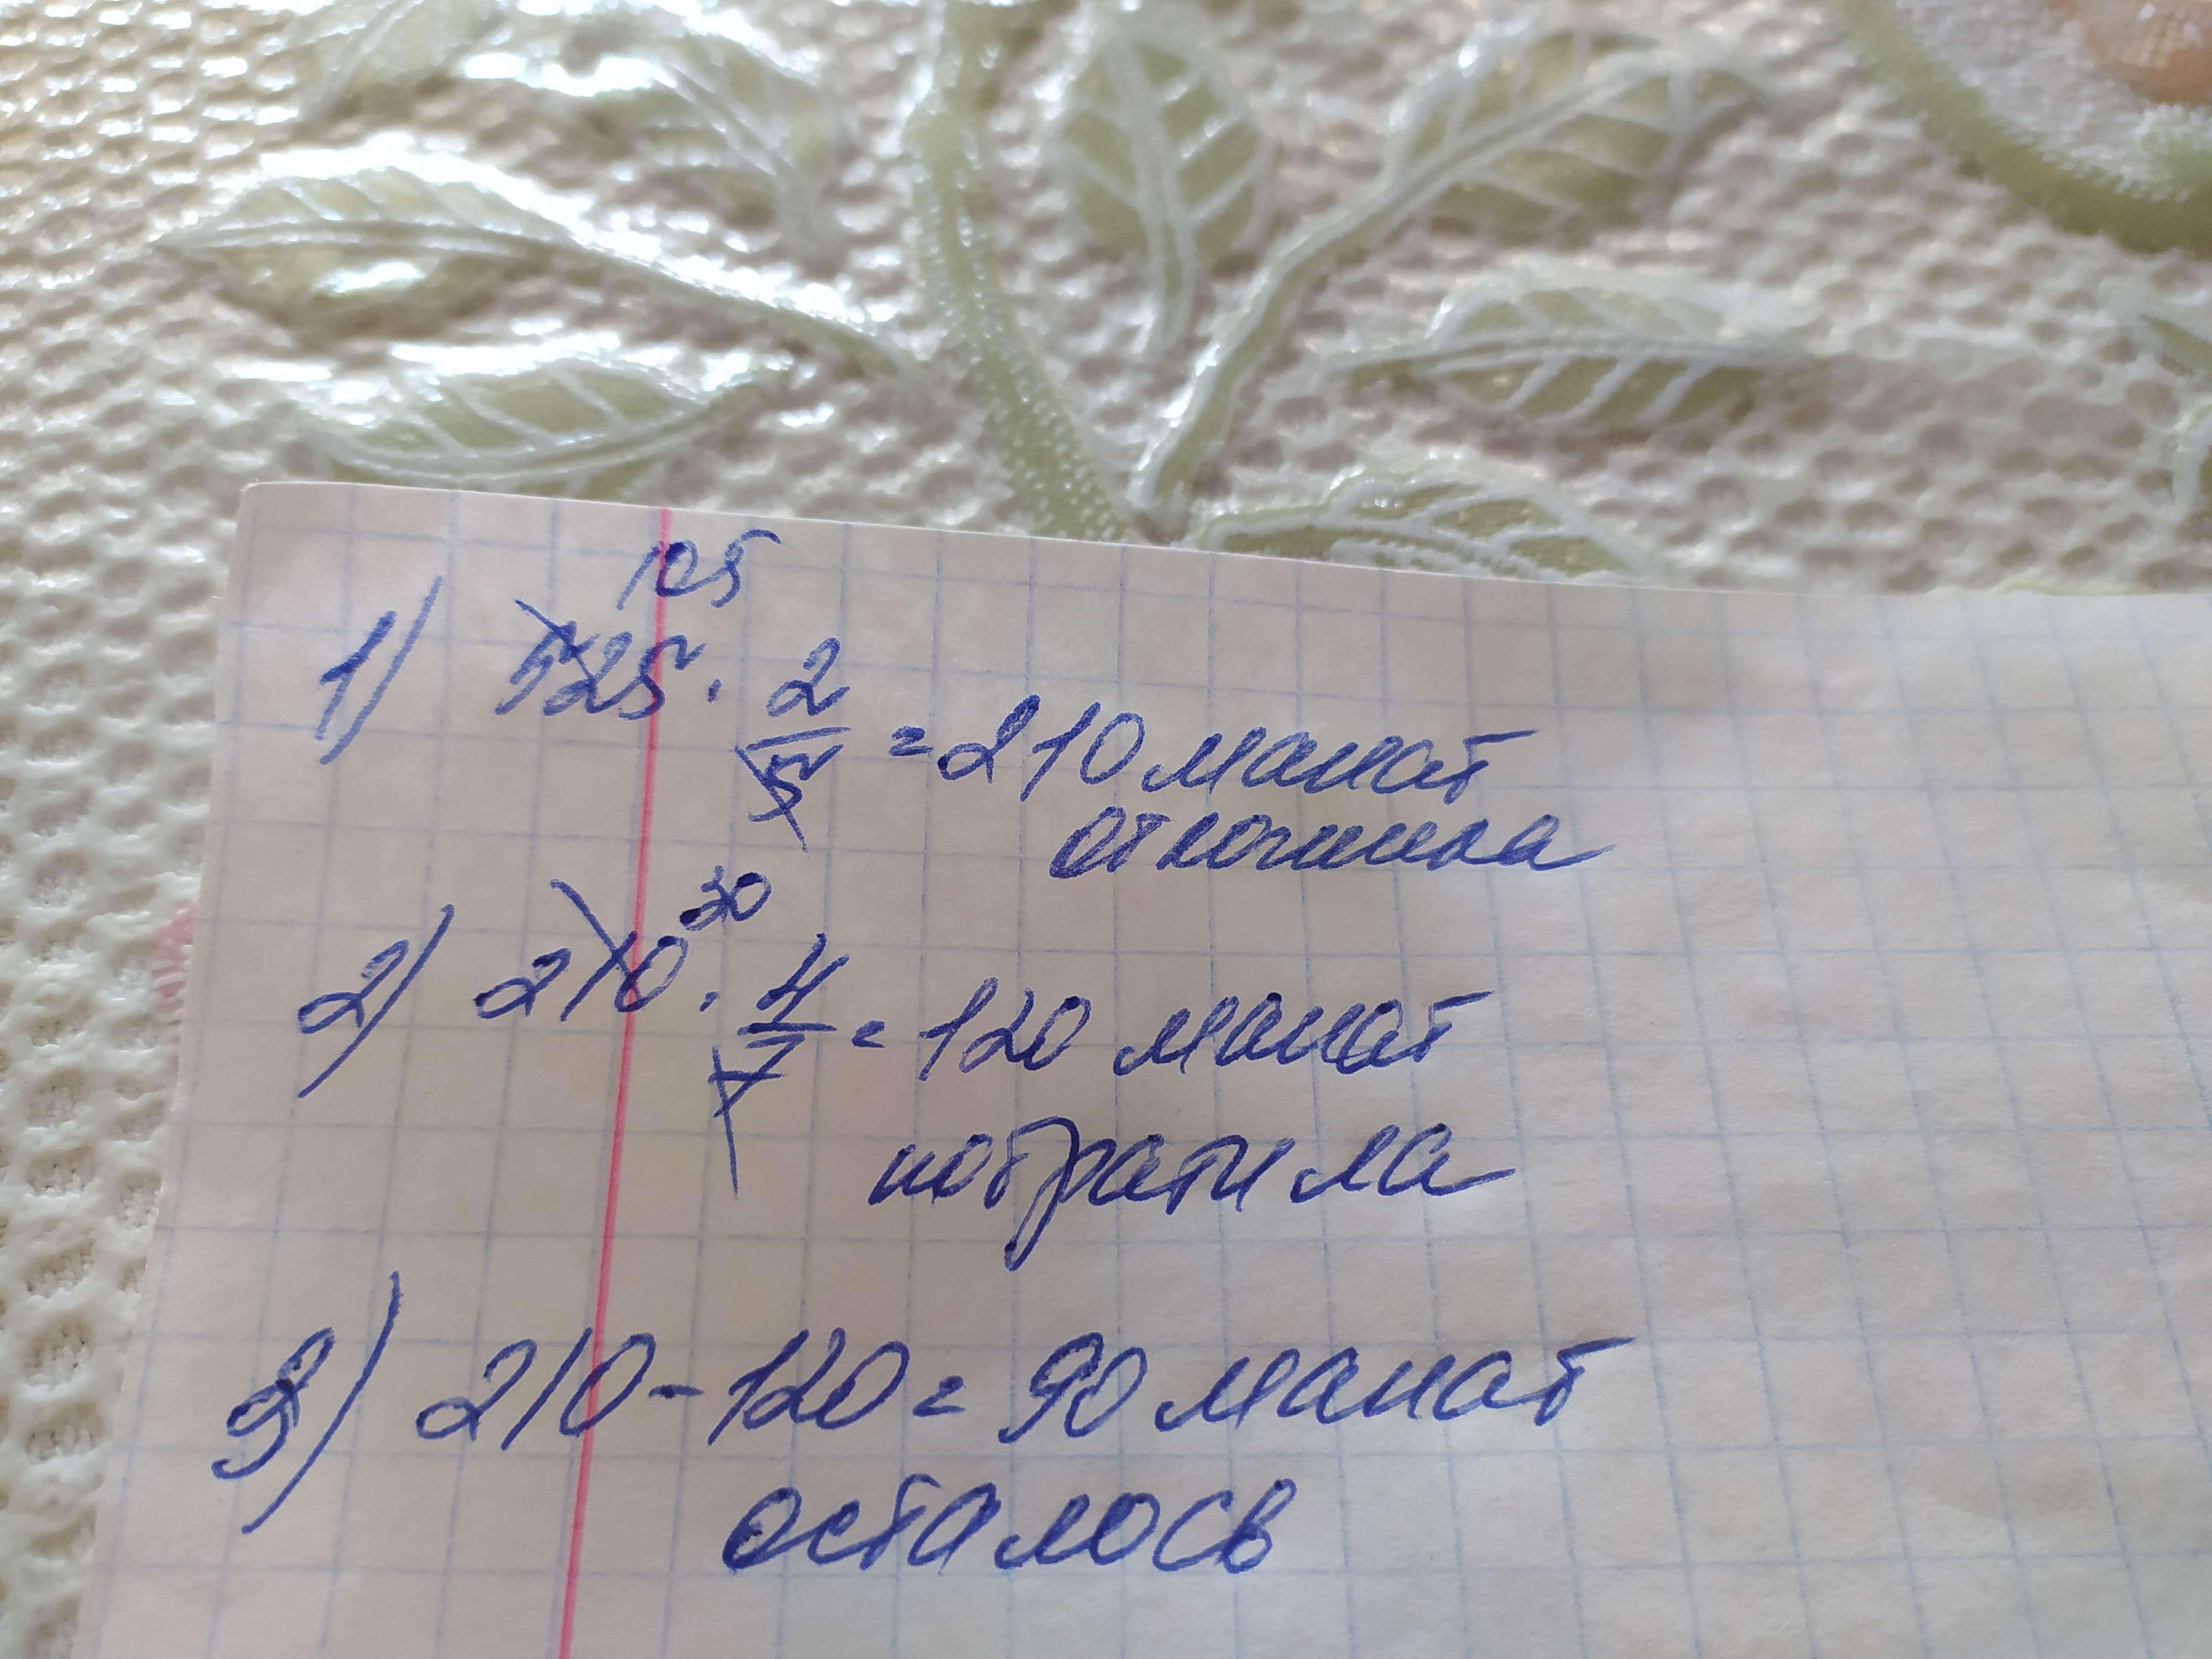 105
1) 525 · 2/5 = 210 манат
отложила
30
2) 210 · 4/7 = 120 манат
потратила
3) 210 - 120 = 90 манат
осталось